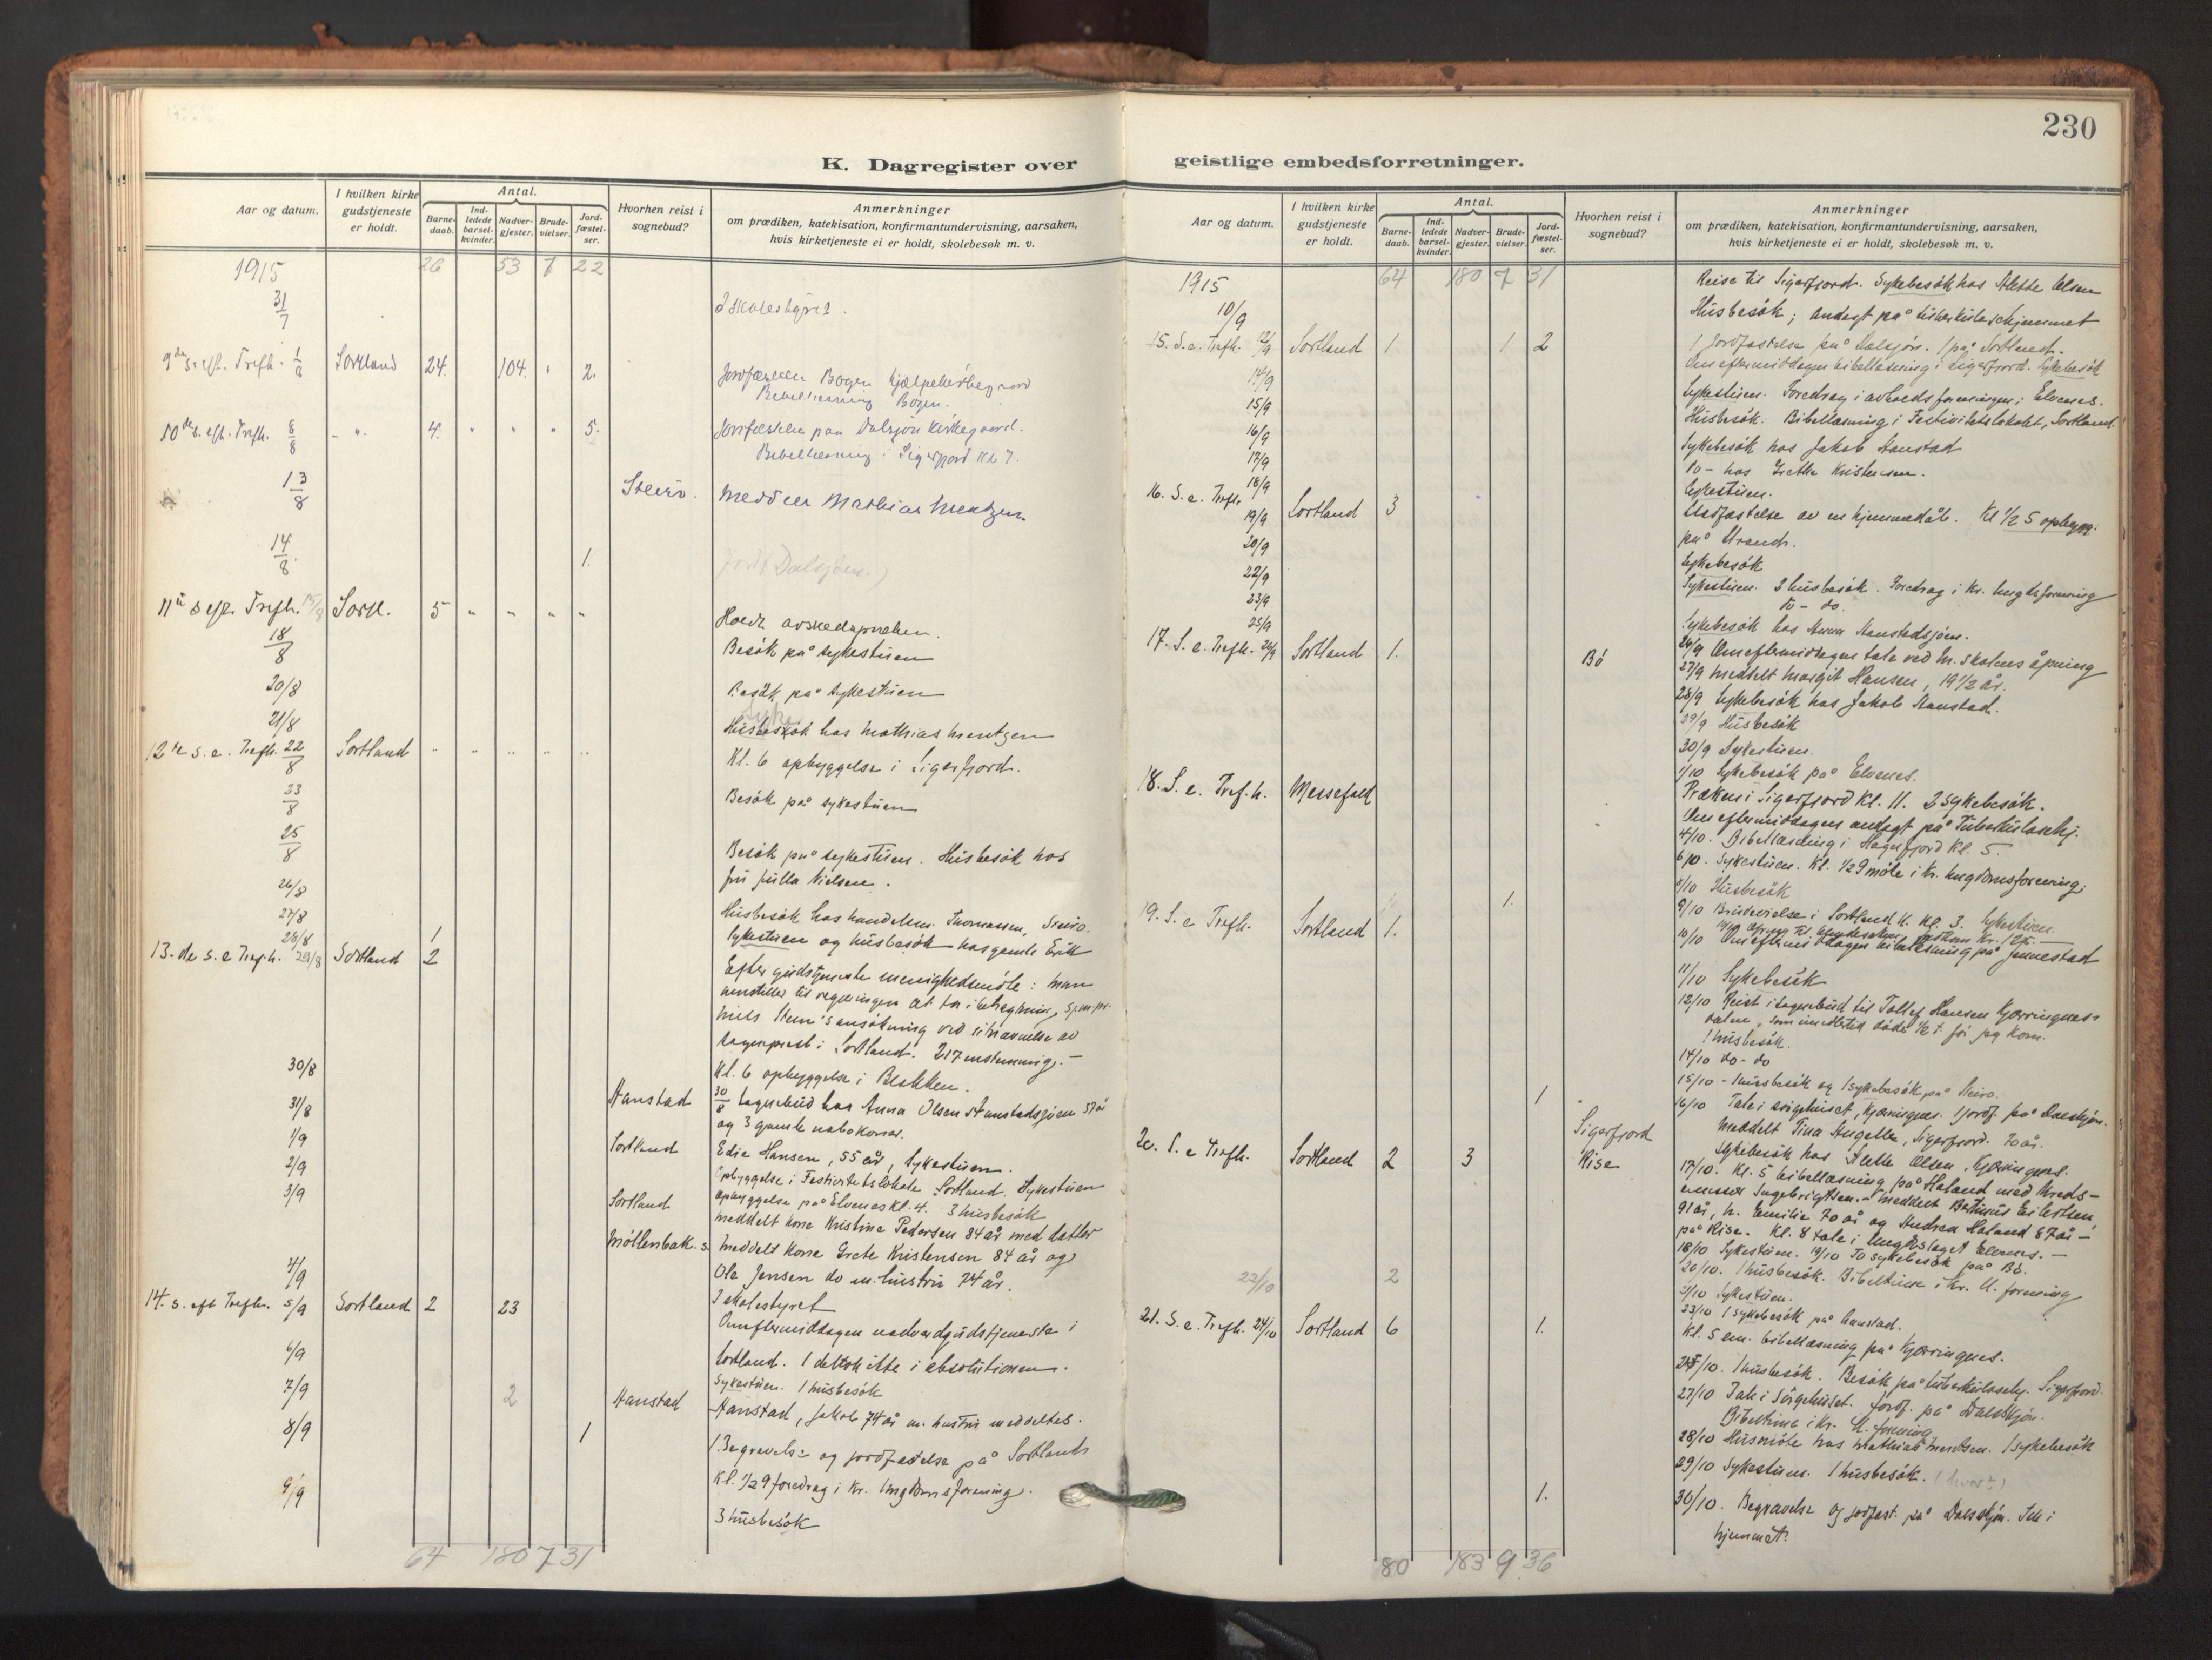 230
K. Dagregister over
Aar og datum.
I hvilken kirke gudstjeneste er holdt.
Antal.
Barne-daab.
Ind-ledede barsel-kvinder.
Nadver-gjester.
Brude-vielser.
Jord-fæstel-ser.
Hvorhen reist i sognebud?
Anmerkninger
om prædiken, katekisation, konfirmantundervisning, aarsaken,
hvis kirketjeneste ei er holdt, skolebesøk m. v.
1915 26 53 7 22
31/7 I skolestyret.
9de s. eft. Trefh. 1/8 Sortland 24. 104. " 2. Jordfæstelse Bogen
Bibellæsning Bogen.
10de s. eft. Trefh. 8/8 - " - 4. " " " 5. Jordfæstelse paa Dalsjøn kirkegaard.
Bibellæsning i Sigerfjord kl 7.
13/8 Steiro. Meddelt Mathias Mentzen.
14/8 1. Dalsjøen.)
11te s. eft. Trefh. 15/8 Sortl. 5 " " " " Holdt avskedspræken.
18/8 Besøk på sykestuen
20/8 Besøk på sykestuen
21/8 Husbesøk hos Mathias Mentzen
12te s. e. Trefh. 22/8 Sortland " " " " " Kl. 6 opbyggelse i Sigerfjord.
23/8 Besøk på sykestuen
25/8 Besøk på sykestuen. Husbesøk hos
fru Julla Nielsen.
26/8
27/8 Husbesøk hos handelsm. Thomassen, Steiro.
28/8 1 Sykestuen og husbesøk hos gamle Erik
13. de s. e Trefh. 29/8 Sortland 2 Efter gudstjeneste menighedsmøte: man
henstiller til regjeringen at ta i betragtning
ansøkning ved utnævnelse av
sogneprest i Sortland. 217 enstemmig. -
Kl. 6 opbyggelse i Blokken.
30/8 Hanstad 30/8 Sognebud hos Anna Olsen
31/8 og 3 gamle nabokoner.
1/9 Sortland Edie Hansen, 55 år, Sykestuen.
2/9 Opbyggelse i Festivitetslokale Sortland. Sykestuen
3/9 Sortland Opbyggelse på Elvenes kl. 4. 3 husbesøk
Meddelt kone Kristine Pedersen 84 år med datter
Meddelt kone Grete Kristensen 84 år og
4/9 Ole Jensen do m. hustru 74 år.
I skolestyret
14. s. eft Trefh. 5/9 Sortland 2 23 Om eftermiddagen nadverdgudstjeneste i
Sortland. 1 deltok ikke i absolutionen.
6/9 Sykestuen. 1 husbesøk
7/9 2 Hanstad Hanstad, Jakob 74 år m. hustru meddeltes.
8/9 1 1 Begravelse og jordfæstelse på Sortland
Kl. 1/2 9 foredrag i Kr. Ungdomsforening.
9/9 3 husbesøk
64 180 7 31
geistlige embedsforretninger.
Aar og datum.
I hvilken kirke gudstjeneste er holdt.
Antal.
Barne-daab.
Ind-ledede barsel-kvinder.
Nadver-gjester.
Brude-vielser.
Jord-fæstel-ser.
Hvorhen reist i sognebud?
Anmerkninger
om prædiken, katekisation, konfirmantundervisning, aarsaken,
hvis kirketjeneste ei er holdt, skolebesøk m. v.
1915 64 180 7 31 Reise til Sigerfjord. Sykebesøk hos Alette Olsen
10/9 Husbesøk; andagt på tuberkulosehjemmet
15. S. e. Trefh. 12/9 Sortland 1 1 2 1 Jordfæstelse på Dalsjøn. 1 på Sortland.
Om eftermiddagen bibellæsning i Sigerfjord. Sykebesøk
14/9 Sykestuen. Foredrag i avholdsforeningen i Elvenes.
15/9 Husbesøk. Bibellæsning i Festivitetslokalet, Sortland.
16/9 Sykebesøk hos Jakob Hanstad
17/9 do - hos Grethe Kristensen.
18/9 Sykestuen.
16. S. e. Trefh. 19/9 Sortland 3 Stadfæstelse av en hjemmedåb. Kl 1/2 5 opbygg.
på Strand.
20/9 Sykebesøk
22/9 Sykestuen. 2 husbesøk. Foredrag i Kr. Ungdsforening
23/9 do - do.
25/9 Sykebesøk hos Anna Hanstadsjøen.
17. S. e. Trefh. 26/9 Sortland 1. Bø 26/9 Om eftermiddagen tale ved M. skolens åpning
27/9 Meddelt Margit Hansen, 19 1/2 år.
28/9 Sykebesøk hos Jakob Hanstad.
29/9 Husbesøk
30/9 Sykestuen.
1/10 Sykebesøk på Elvenes.
18. S. e. Tref. h. Messefald Præken i Sigerfjord kl. 11. 2 sykebesøk.
Om eftermiddagen andagt på Tuberkulosehj.
4/10. Bibellæsning i Kl. 5.
6/10. Sykestuen. Kl. 1/2 9 møte i Kr. Ungdomsforening.
8/10 Husbesøk
1. 9/10 Brudevielse i Sortland k. kl. 3. Sykestuen.
19. S. e Trefh. Sortland 1. 10/10 Om eftermiddagen bibellæsning på Jennestad
11/10 Sykebesøk
13/10 Reist i sognebud til Tollef Hansen Kjerringnes-
dalen, som imidlertid døde 1/2 t. før jeg kom.
1 husbesøk.
14/10 do - do
15/10 - 1 husbesøk og 1 sykebesøk på Steiro.
1 16/10 Tale i sørgehuset, Kjerringnes. 1 jordf. på Dalsjøn.
Sigerfjord Meddelt Tina Angelle, Sigerfjord. 70 år.
Sykebesøk hos Alette Olsen, Kjerringnes.
20. S. e Trefh. Sortland 2 3 Rise 17/10. Kl. 5 bibellæsning på Holand med Kreds-
emissær Ingebrigtsen. - Meddelt Eilertsen
91 år, h. Emilie 70 år og Andrea Holand 87 år -
på Rise. Kl. 8 tale i Ungdslaget Elvenes. -
18/10 Sykestuen. 19/10 To sykebesøk på Bø.
22/10 2 20/10. 1 husbesøk. Bibeltime i Kr. U. forening
21/10 Sykestuen.
23/10 1 sykebesøk på Hanstad.
21. S. e. Trefh. 24/10 Sortland 6 1. Kl. 5 em. bibellæsning på Kjerringnes.
25/10. 1 husbesøk. Besøk på tuberkulosehj. Sigerfjord.
27/10 Tale i Sørgehuset. Jordf. på Dalsjøn.
Bibeltime i Kr. U. forening
28/10 Husmøte hos Mathias Mentsen. 1 sykebesøk
29/10 Sykestuen. 1 husbesøk. (hvor?)
1. 30/10. Begravelse og jordfæst. på Dalsjøn. Tale i
hjemmet.
80 183 9 36